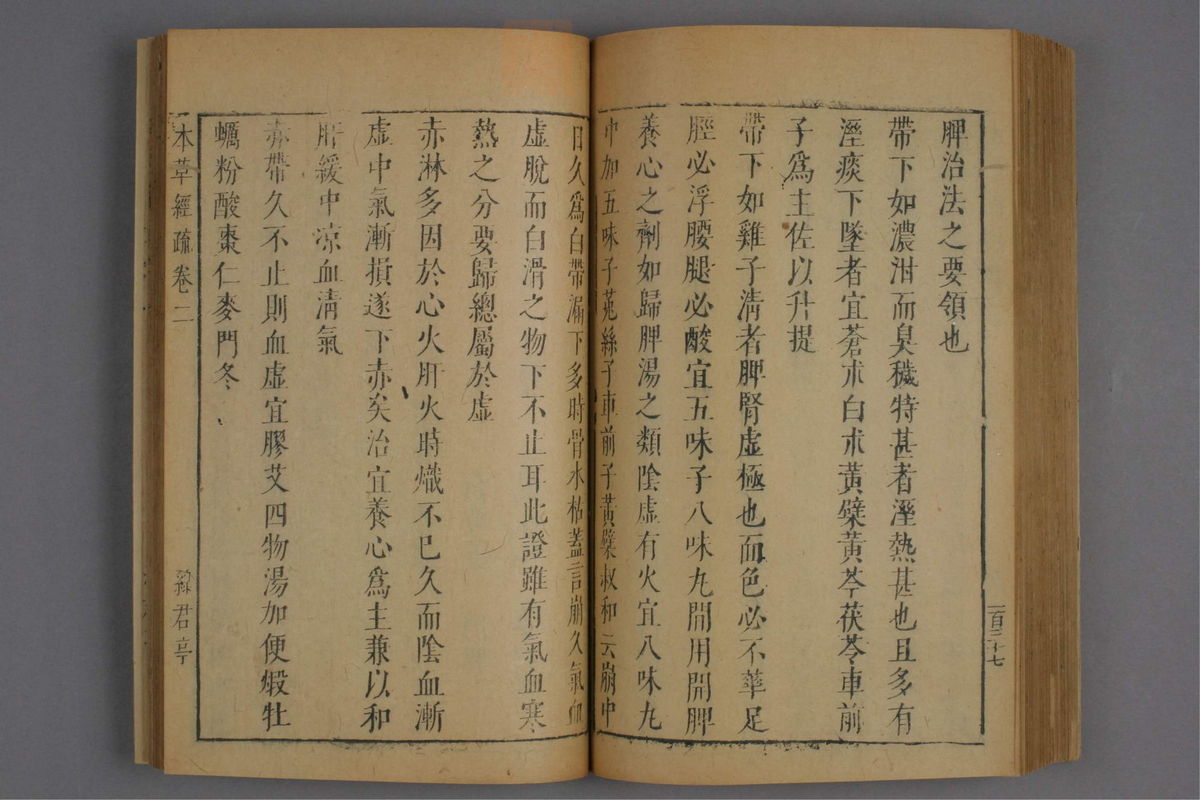 脾治法之要領也
帶下如濃泔而臭穢特甚者溼熱甚也且多有
溼痰下墜者宜蒼朮白朮黃櫱黃芩茯苓車前
子爲主佐以升提
帶下如雞子淸者脾腎虛極也面色必不華足
脛必浮腰腿必酸宜五味子八味丸間用開脾
養心之劑如歸脾湯之類陰虛有火宜八味丸
中加五味子菟絲子車前子黃櫱叔和云崩中
日久爲白帶漏下多時骨水枯蓋言崩久氣血
虛脫而白滑之物下不止耳此證雖有氣血寒
熱之分要歸總屬於虛
赤淋多因於心火肝火時熾不已久而陰血漸
虛中氣漸損遂下赤矣治宜養心爲主兼以和
肝緩中凉血淸氣
赤帶久不止則血虛宜膠艾四物湯加便煆牡
蠣粉酸棗仁麥門冬
本草經疏卷二
綠君亭
一百三十七